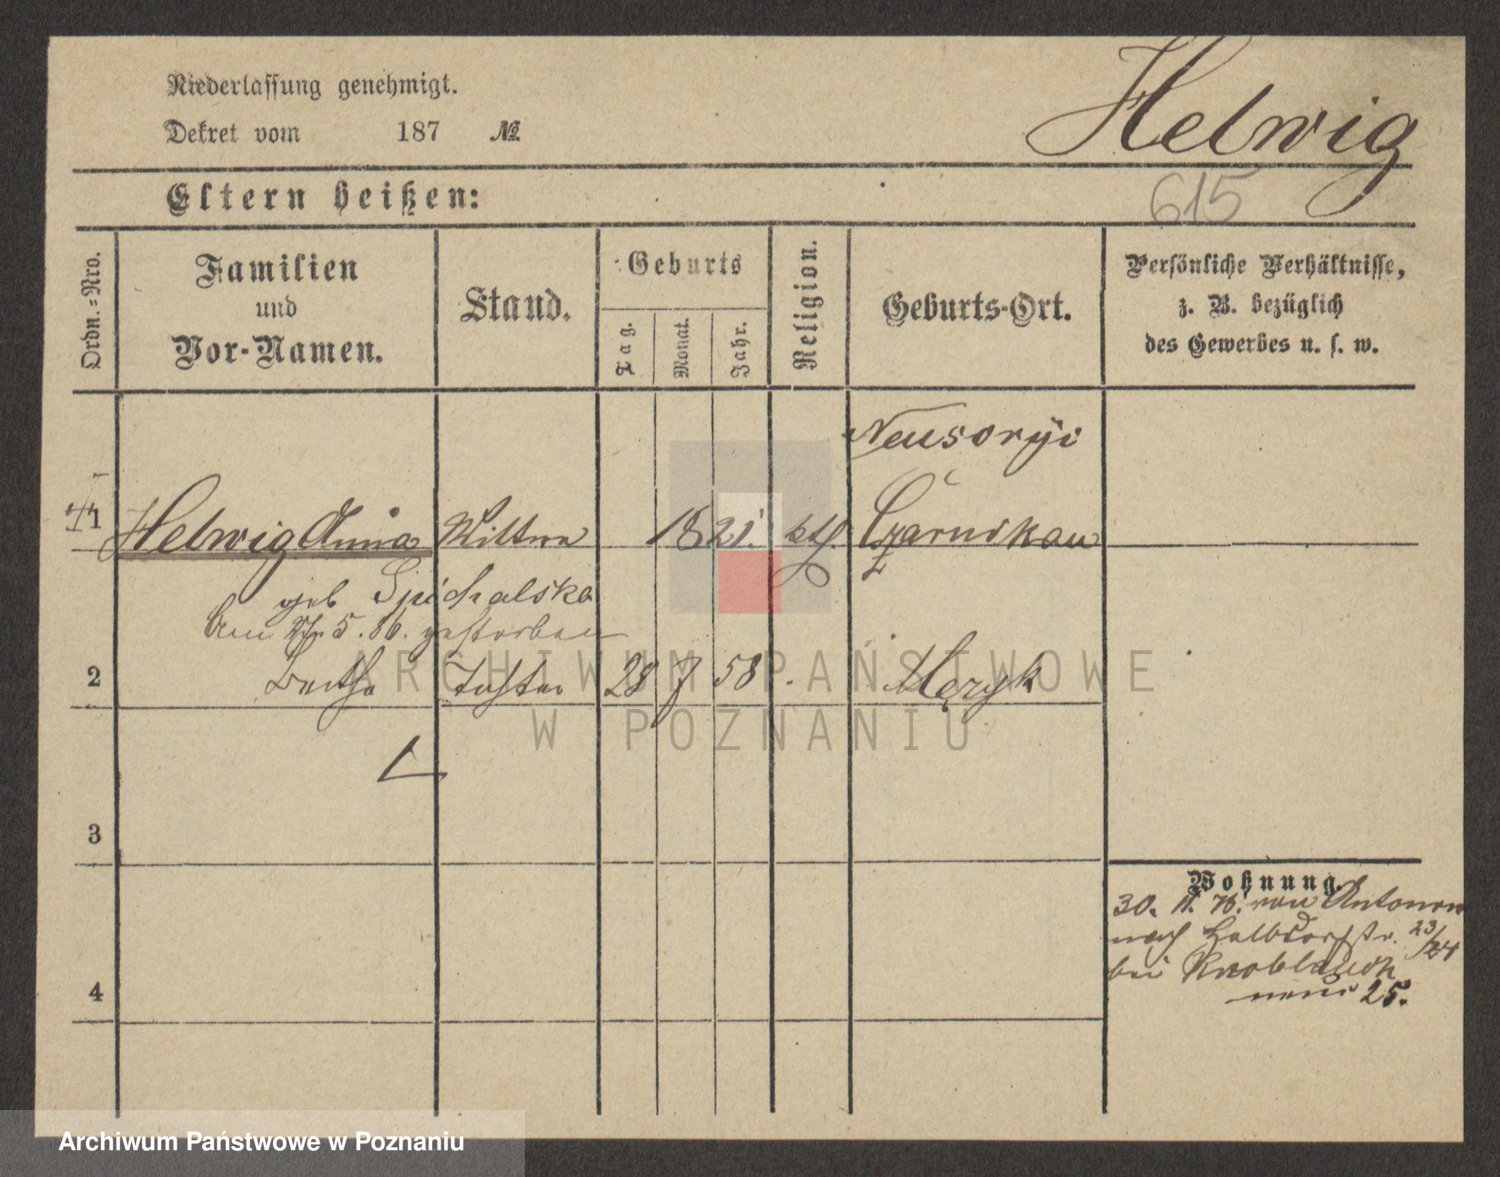 Niederlassung genehmigt.
Dekret vom 187 №
Helwig
Eltern heißen:
615
Ordn.=Nro.
Familien
und
Vor-Namen.
Stand.
Geburts
Tag.
Monat.
Jahr.
Religion.
Geburts-Ort.
Persönliche Verhältnisse,
z. B. bezüglich
des Gewerbes u. s. w.
1 Helwig Anna Wittwe 1821. kth. Czarnikau
geb Spichalska
Am 27. 5. 86. gestorben
2 Bertha Tochter 28 7 58
3
4
Wohnung.
30. 11. 78. von
nach Halbdorfstr. 23/24
bei Knoblauch
neu 25.
ARCHIWUM PAŃSTWOWE
W POZNANIU
Archiwum Państwowe w Poznaniu